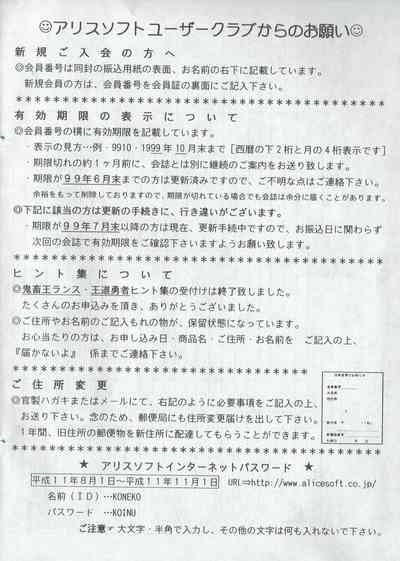 ☺アリスソフトユーザークラブからのお願い☺
新規ご入会の方へ
◎会員番号は同封の振込用紙の表面、お名前の右下に記載しています。
新規会員の方は、会員番号を会員証の裏面にご記入下さい。
有効期限の表示について
◎会員番号の横に有効期限を記載しています。
・表示の見方…例・9910・1999年10月末まで[西暦の下2桁と月の4桁表示です]
・期限切れの約1ヶ月前に、会誌とは別に継続のご案内をお送り致します。
・期限が99年6月末までの方は更新済みですので、ご不明な点はご連絡下さい。
余裕をもって削除しておりますので、期限が切れている場合でも会誌は余分に届くことがあります。
◎下記に該当の方は更新の手続きに、行き違いがございます。
・期限が99年7月末以降の方は現在、更新手続中ですので、お振込日に関わらず
次回の会誌で有効期限をご確認下さいますようお願い致します。
ヒント集について
◎鬼畜王ランス・王道勇者ヒント集の受付けは終了致しました。
たくさんのお申込みを頂き、ありがとうございました。
◎ご住所やお名前のご記入もれの物が、保留状態になっています。
お心当たりの方は、お申し込み日・商品名・ご住所・お名前を ご記入の上、
『届かないよ』 係までご連絡下さい。
ご住所変更
◎官製ハガキまたはメールにて、右記のように必要事項をご記入の上、
お送り下さい。念のため、郵便局にも住所変更届けを出して下さい。
1年間、旧住所の郵便物を新住所に配達してもらうことができます。
★ アリスソフトインターネットパスワード ★
平成11年8月1日〜平成11年11月1日 URL⇒http://www.alicesoft.co.jp/
名前(ID)…KONEKO
パスワード …KOINU
ご注意☞大文字・半角で入力し、その他の文字は何も入れないで下さい。